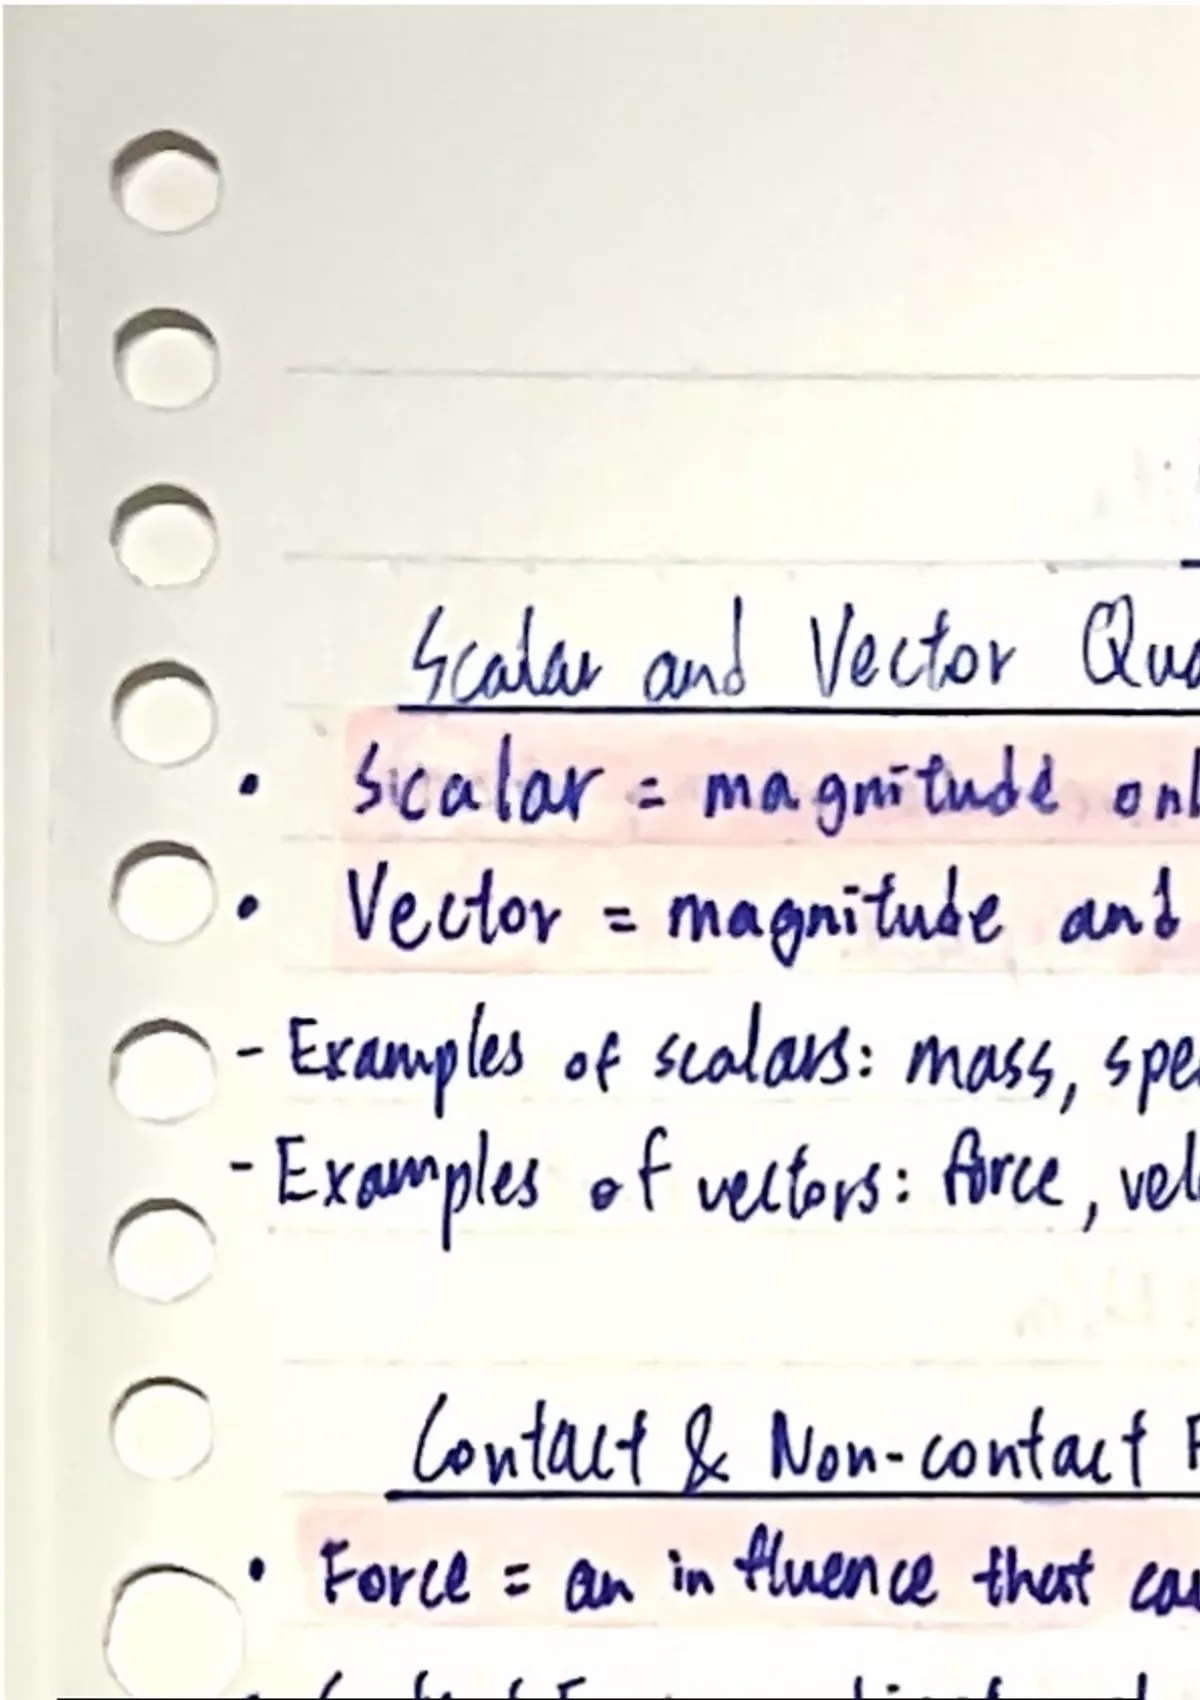 Scalar and Vector Qua
• Scalar = magnitude onl
• Vector = magnitude and
- Examples of scalars: mass, spe
- Examples of vectors: force, vel
Contact & Non-contact F
• Force = an influence that can